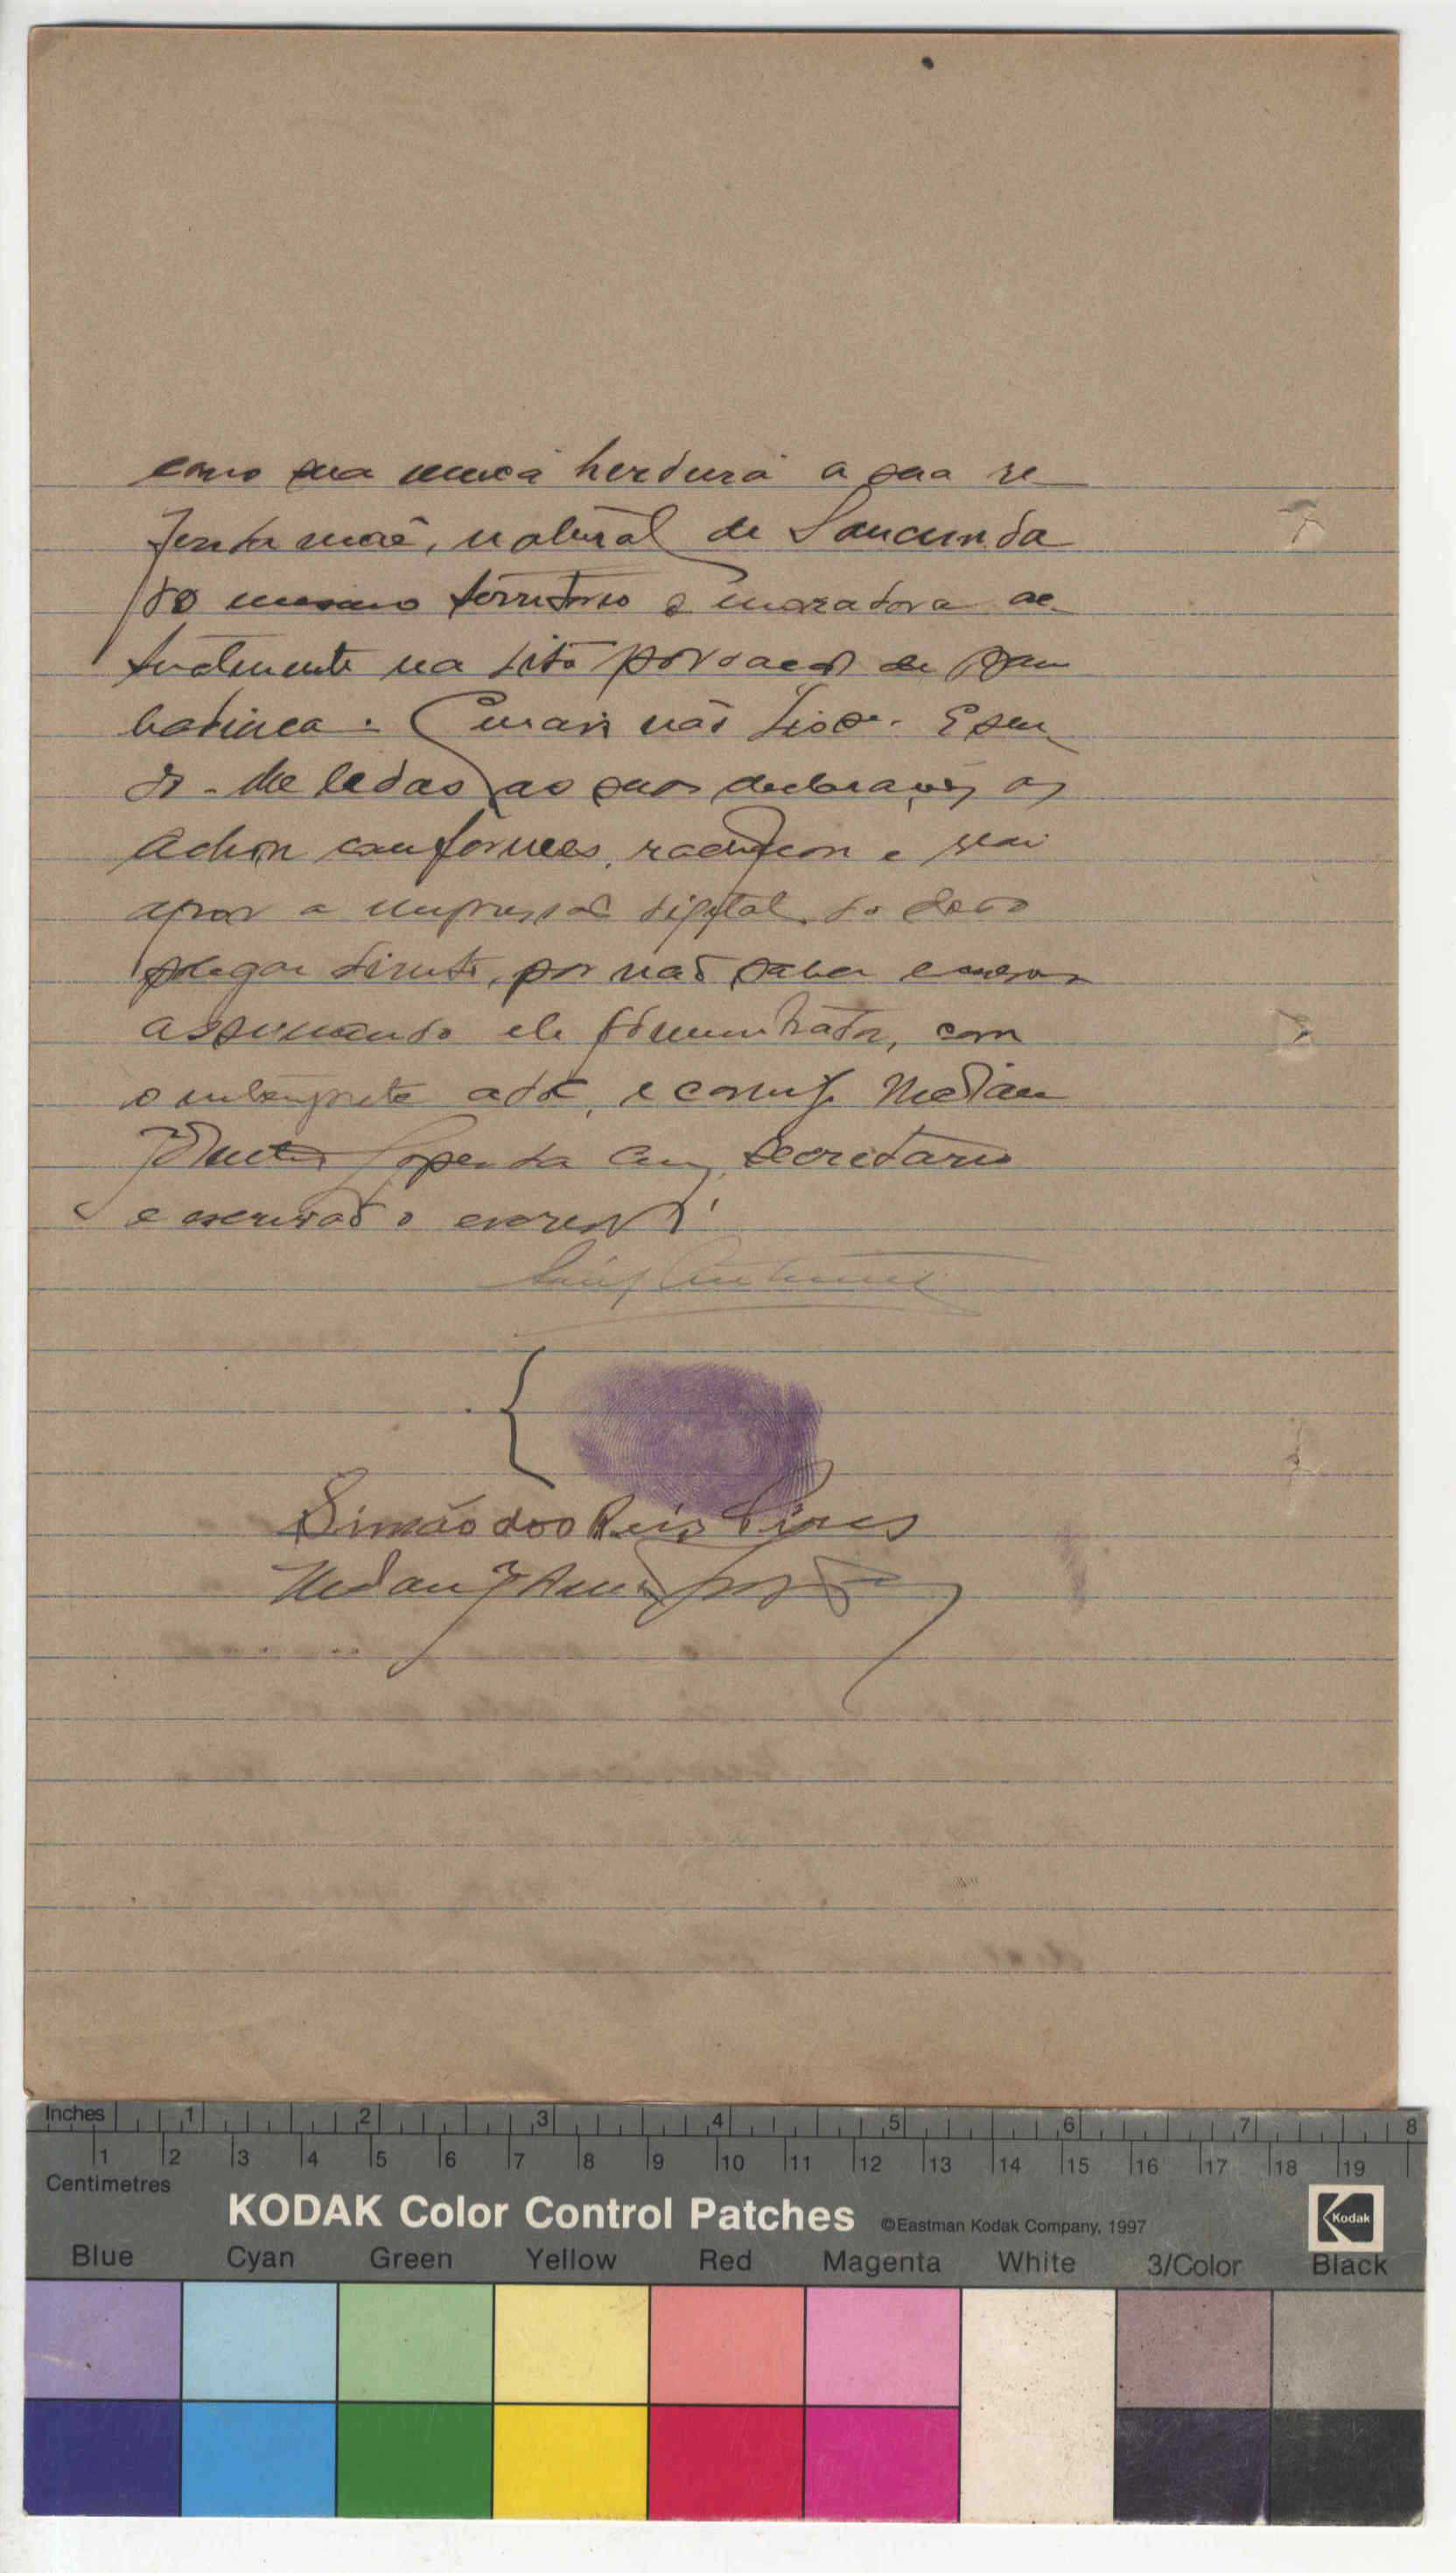 como sua unica herdeira a sua re-
ferida mãe, natural de Sancunda
do mesmo territorio e moradora ac-
tualmente na dita povoação de Bam
badinca. E mais não disse. E sen
do-lhe lidas as suas declarações as
achou conformes, ratificou e vai
apor a impressão digital do dedo
polegar direito, por não saber escrever
assinando ele administrador, com
o interprete adoc, e comigo
Lopes da secretario
e escrivão o escrevi
Simão dos Reis Pires
Inches 1 2 3 4 5 6 7 8
1 2 3 4 5 6 7 8 9 10 11 12 13 14 15 16 17 18 19
Centimetres
KODAK Color Control Patches ©Eastman Kodak Company, 1997 Kodak
Blue Cyan Green Yellow Red Magenta White 3/Color Black